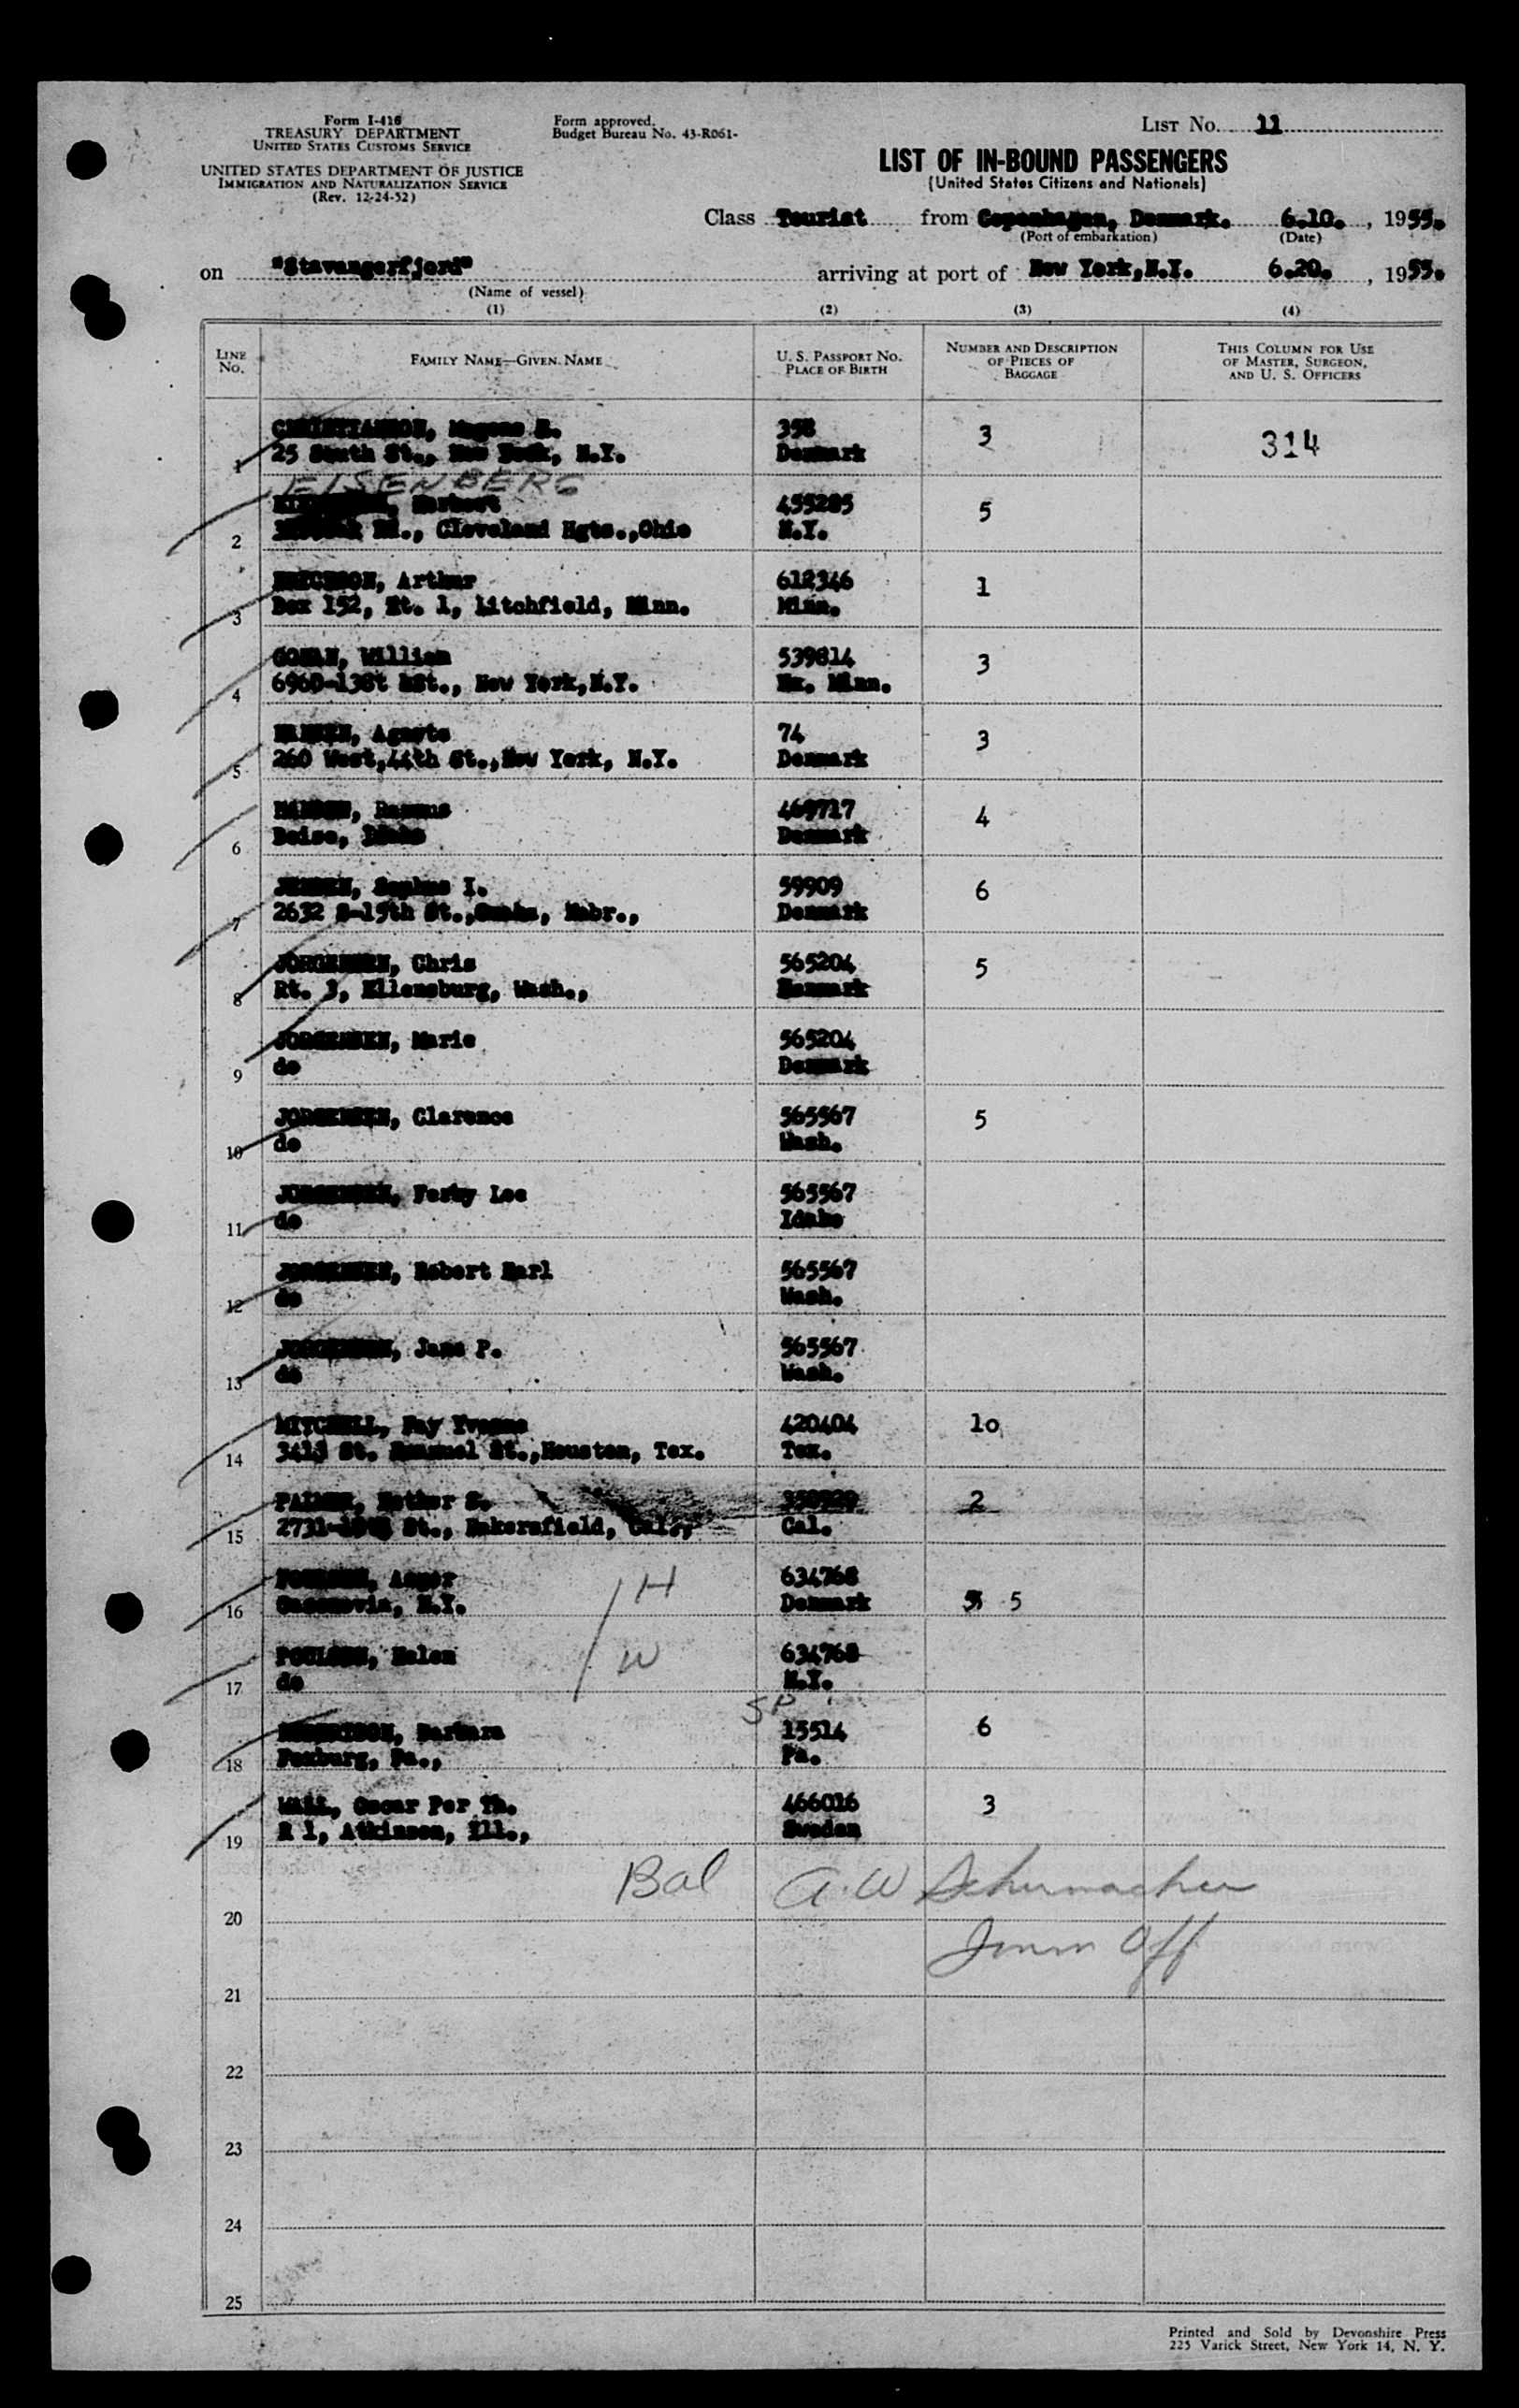 Form I-418
TREASURY DEPARTMENT
UNITED STATES CUSTOMS SERVICE
UNITED STATES DEPARTMENT OF JUSTICE
IMMIGRATION AND NATURALIZATION SERVICE
(Rev. 12-24-52)
Form approved.
Budget Bureau No. 43-R061-
LIST No. 11
LIST OF IN-BOUND PASSENGERS
(United States Citizens and Nationals)
Class Tourist from Copenhagen, Denmark. 6.10., 1955.
(Port of embarkation) (Date)
on "Stavangerfjord" arriving at port of New York, N.Y. 6.20., 1955.
(Name of vessel)
(1) (2) (3) (4)
LINE No. FAMILY NAME—GIVEN NAME U. S. PASSPORT No. PLACE OF BIRTH NUMBER AND DESCRIPTION OF PIECES OF BAGGAGE THIS COLUMN FOR USE OF MASTER, SURGEON, AND U. S. OFFICERS
CHRISTIANSON, Mogens 358 3 314
1 25 South St., New York, N.Y. Denmark
EISENBERG
Herbert 455285 5
2 Rd., Cleveland Hgts., Ohio N.Y.
ERICKSON, Arthur 612346 1
3 Box 152, Rt. 1, Litchfield, Minn. Minn.
William 539814 3
4 New York, N.Y. Minn.
HANSEN, Agnete 74 3
5 260 West, 44th St., New York, N.Y. Denmark
HANSEN, Rasmus 469717 4
6 Boise, Idaho Denmark
JENSEN, Sophus I. 59909 6
7 2632 S-15th St., Omaha, Nebr., Denmark
JORGENSEN, Chris 565204 5
8 Rt. 3, Ellensburg, Wash., Denmark
JORGENSEN, Marie 565204
9 do Denmark
JORGENSEN, Clarence 565567 5
10 do Wash.
JORGENSEN, Lee 565567
11 do Idaho
JORGENSEN, Robert Earl 565567
12 do Wash.
JORGENSEN, Jane P. 565567
13 do Wash.
MITCHELL, Fay Yvonne 420404 10
14 St. Emanuel St., Houston, Tex. Tex.
PALMER, Esther S. 2
15 St., Bakersfield, Cal., Cal.
POULSEN, Asger H 634768 5
16 Cazenovia, N.Y. Denmark
POULSEN, Helen W 634768
17 do N.Y.
SP
Barbara 15514 6
18 Foxburg, Pa., Pa.
WALL, Oscar Per Th. 466016 3
19 R 1, Atkinson, Ill., Sweden
Bal A. W Schumacher
20
Imm Off
21
22
23
24
25
Printed and Sold by Devonshire Press
225 Varick Street, New York 14, N. Y.